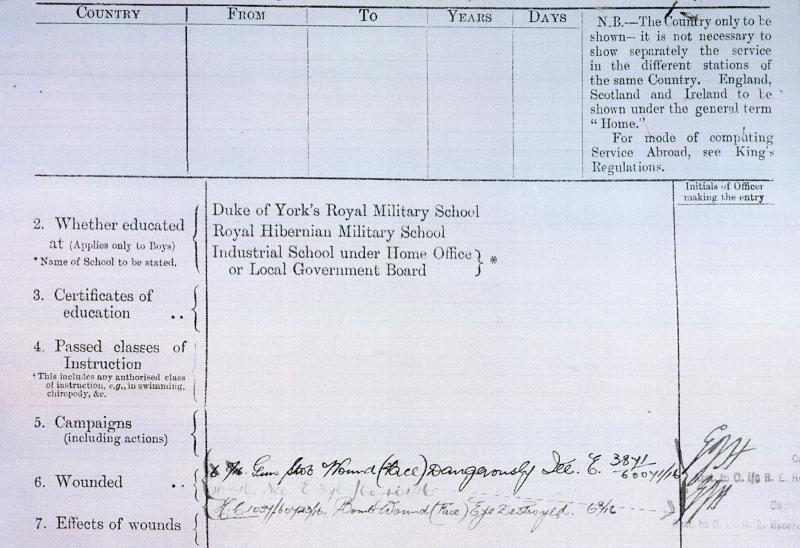 COUNTRY FROM TO YEARS DAYS
N.B.—The Country only to be
shown— it is not necessary to
show separately the service
in the different stations of
the same Country. England,
Scotland and Ireland to be
shown under the general term
"Home."
For mode of computing
Service Abroad, see King's
Regulations.
Initials of Officer
making the entry
2. Whether educated
at (Applies only to Boys)
*Name of School to be stated.
Duke of York's Royal Military School
Royal Hibernian Military School
Industrial School under Home Office
or Local Government Board } *
3. Certificates of
education ..
4. Passed classes of
Instruction
†This includes any authorised class
of instruction, e.g., in swimming,
chiropody, &c.
5. Campaigns
(including actions)
6. Wounded ..
Gun Shot Wound (Face) Dangerously Ill. E.
to O. i/c R. E.
7. Effects of wounds
Bomb Wound (Face) Eye Destroyed.